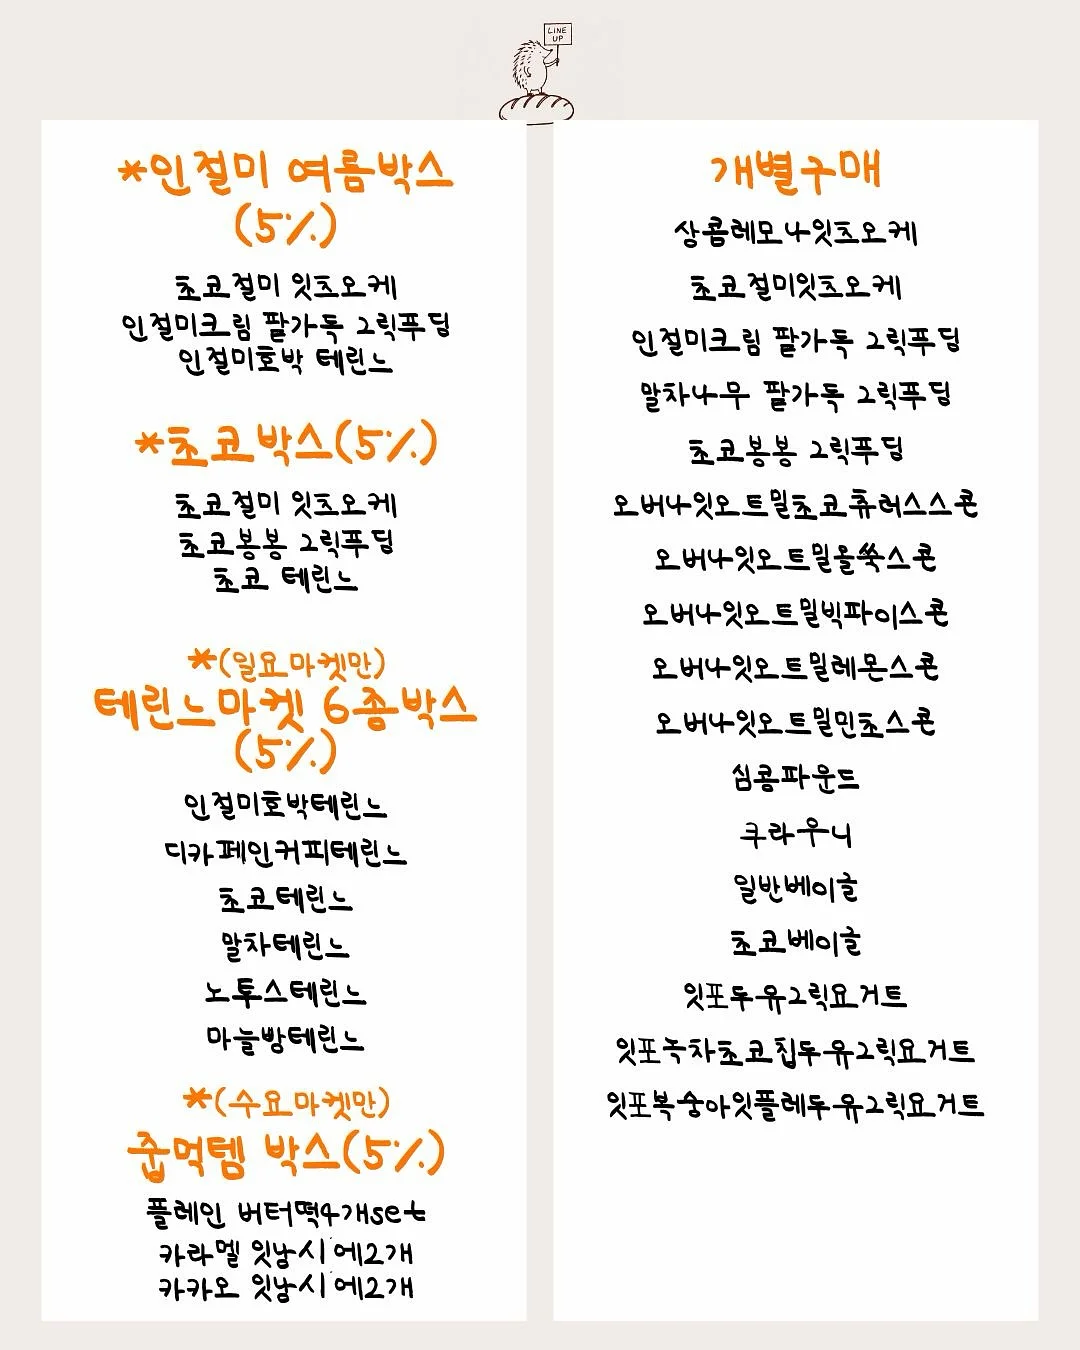 LINE
UP
*인절미 여름박스
(5%)
초코절미 잇츠오케
인절미크림 팥가득 그릭푸딩
인절미호박 테린느
*초코박스(5%)
초코절미 잇츠오케
초코봉봉 그릭푸딩
초코 테린느
*(일요마켓만)
테린느마켓 6좀박스
(5%)
인절미호박테린느
디카페인커피테린느
초코테린느
말차테린느
노투스테린느
마늘빵테린느
*(수요마켓만)
줍먹템 박스(5%)
플레인 버터떡4개set
카라멜 잇낭시에2개
카카오 잇낭시에2개
개별구매
상콤레모나잇츠오케
초코절미잇츠오케
인절미크림 팥가득 그릭푸딩
말차나무 팥가득 그릭푸딩
초코봉봉 그릭푸딩
오버나잇오트밀초코츄러스스콘
오버나잇오트밀올쑥스콘
오버나잇오트밀빅파이스콘
오버나잇오트밀레몬스콘
오버나잇오트밀민초스콘
심콤파운드
쿠라우니
일반베이글
초코베이글
잇포두유그릭요거트
잇포녹차초코칩두유그릭요거트
잇포복숭아잇플레두유그릭요거트